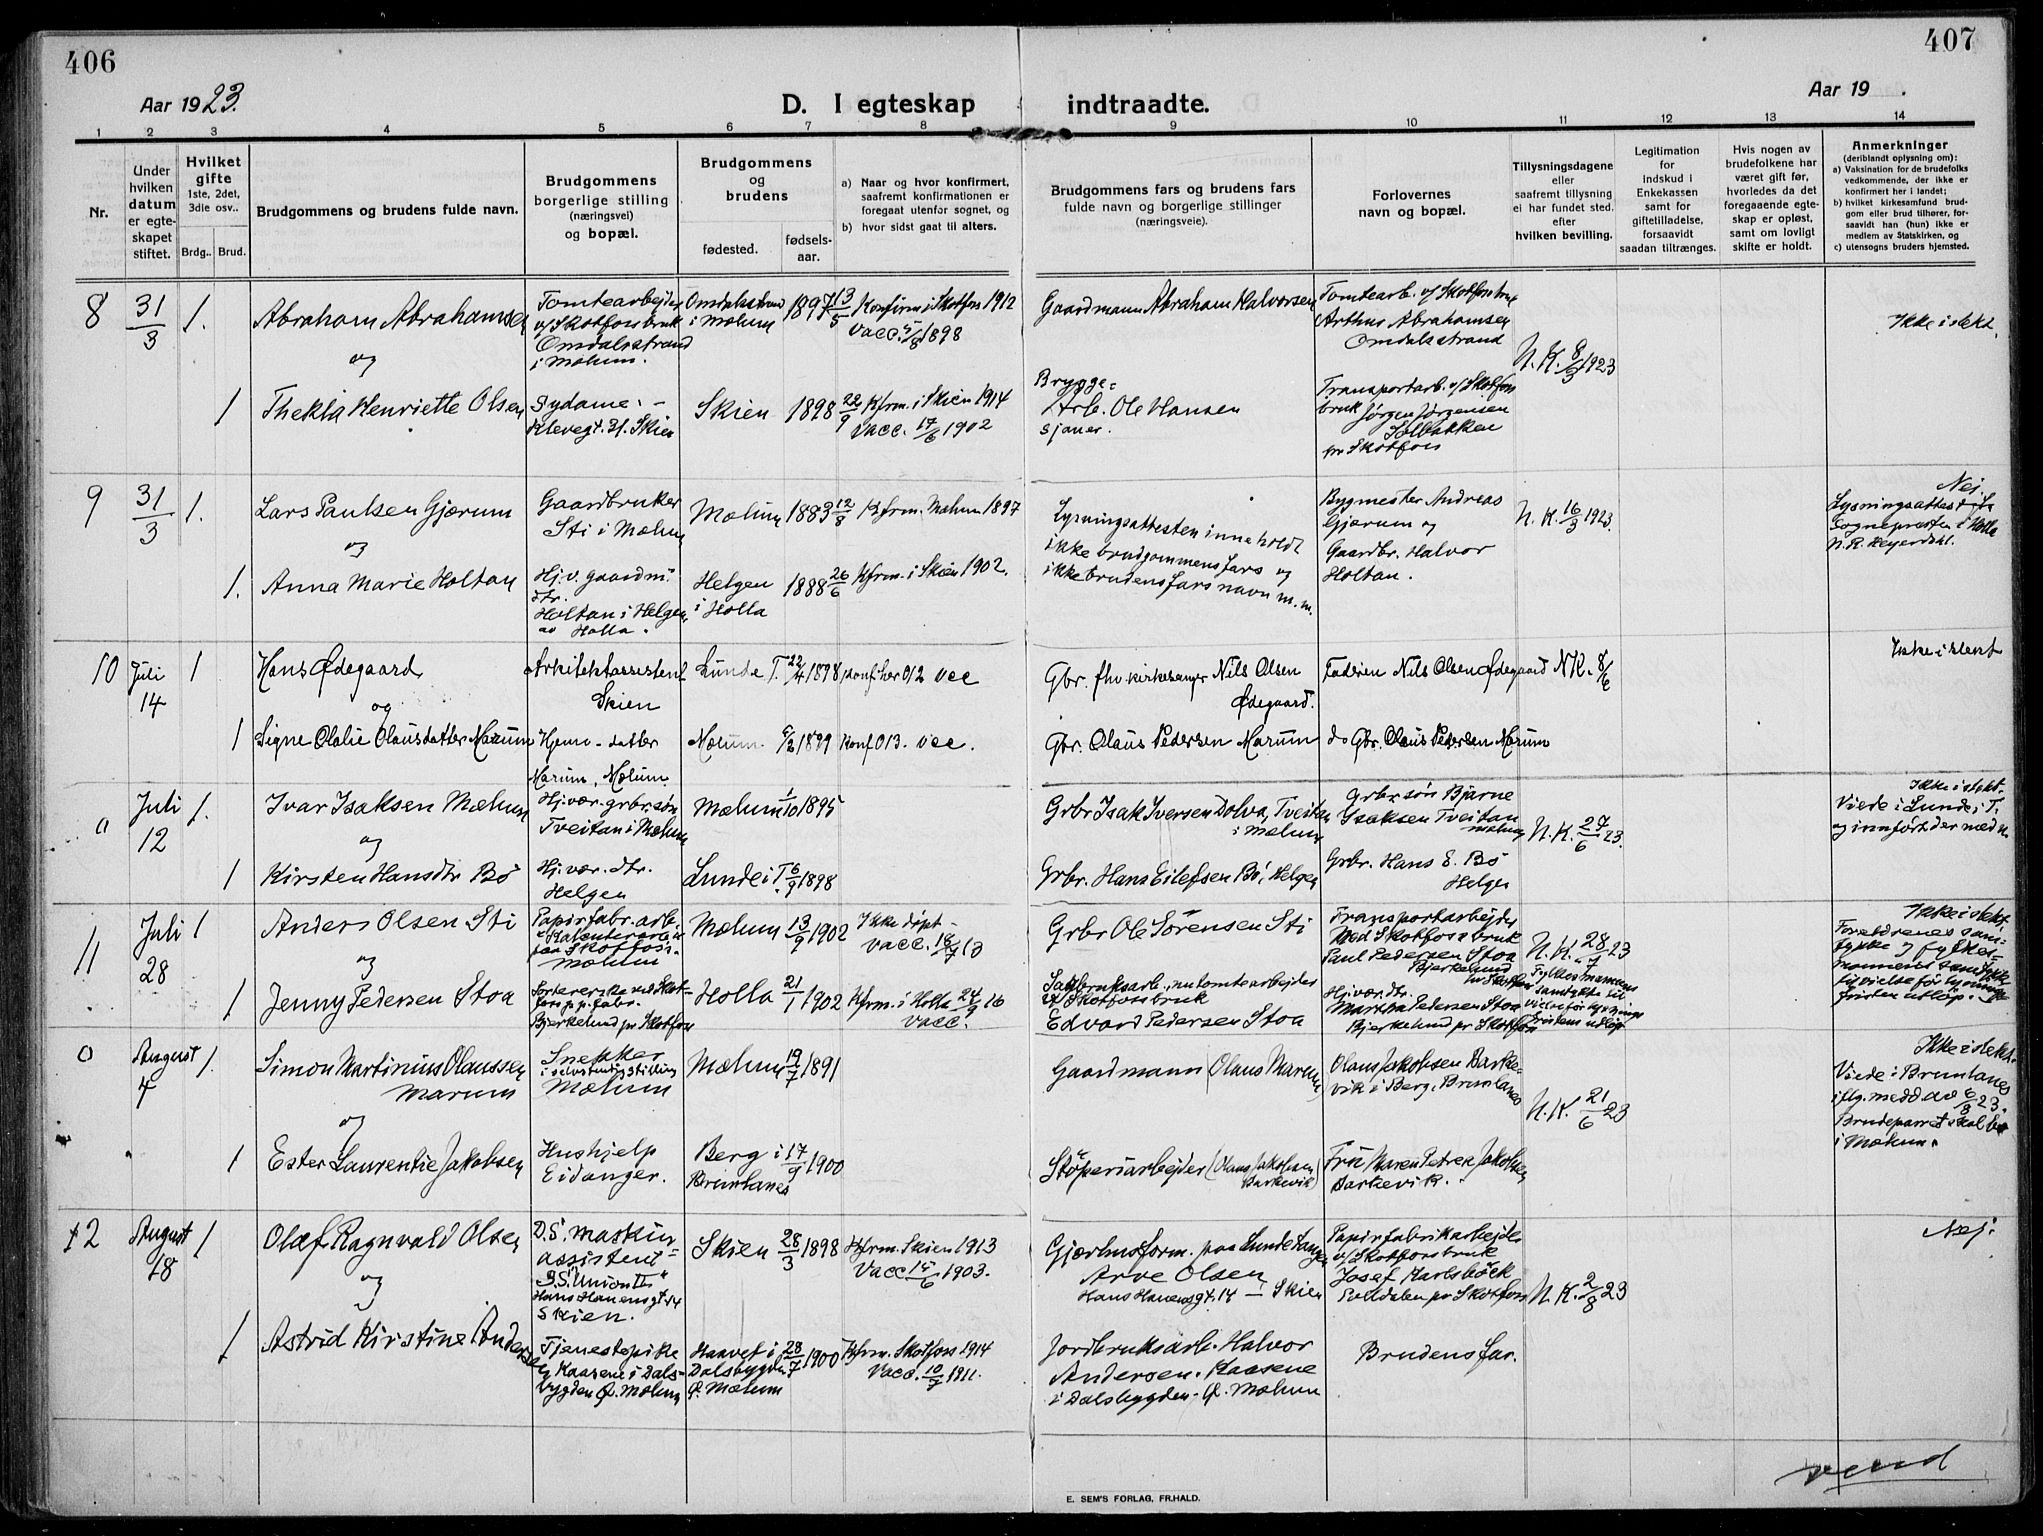 406
407
Aar 1923.
D. I egteskap indtraadte.
Aar 19 .
1 2 3 4 5 6 7 8 9 10 11 12 13 14
Nr.
Under hvilken datum er egteskapet stiftet.
Hvilket gifte 1ste, 2det, 3die osv..
Brdg.. Brud.
Brudgommens og brudens fulde navn.
Brudgommens borgerlige stilling (næringsvei) og bopæl.
Brudgommens og brudens
fødested.
fødsels-aar.
a) Naar og hvor konfirmert, saafremt konfirmationen er foregaat utenfor sognet, og
b) hvor sidst gaat til alters.
Brudgommens fars og brudens fars fulde navn og borgerlige stillinger (næringsveie).
Forlovernes navn og bopæl.
Tillysningsdagene eller saafremt tillysning ei har fundet sted, efter hvilken bevilling.
Legitimation for indskud i Enkekassen samt for giftetilladelse, forsaavidt saadan tiltrænges.
Hvis nogen av brudefolkene har været gift før, hvorledes da det foregaaende egteskap er opløst, samt om lovligt skifte er holdt.
Anmerkninger
(deriblandt oplysning om):
a) Vaksination for de brudefolks vedkommende, der ikke er konfirmert her i landet;
b) hvilket kirkesamfund brudgom eller brud tilhører, forsaavidt han (hun) ikke er medlem av Statskirken, og
c) utensogns bruders hjemsted.
8
31/3
1.
Abraham Abrahamsen
og
Tomtearbejder
v/Skotfossbruk
Omdalsstrand
i Mælum.
Omdalsstrand
i Mælum
1897 13/5
Konfirm. i Skotfoss 1912
Vacc. 5/8 1898
Gaardmann Abraham Halvorsen
Tomtearb. v/Skotfossbruk
Arthur Abrahamsen
Omdalsstrand
N. K. 8/3 1923
Ikke i slekt.
1
Thekla Henriette Olsen
Sydame. -
Klevegt. 21. Skien
Skien
1898 22/9
Kfrm. i Skien 1914
Vacc. 17/6 1902
Brygge-
Arb. Ole Hansen
sjauer.
Transportarb. v/Skotfoss
bruk Jørgen Jørgensen
Solbakken
pr Skotfoss
9
31/3
1.
Lars Paulsen Gjærum
og
Gaardbruker
Sti i Mælum
Mælum
1883 12/8
Kfrm. Mælum 1897
Lysningsattesten inneholdt
ikke brudgommens fars og
ikke brudens fars navn m.m.
Bygmester Andreas
Gjærum og
Gaardbr. Halvor
Holtan.
N. K. 16/3 1923.
Nej.
Lysningsattest fr
Sognepresten i Holla
N. R. Heyerdahl.
1.
Anna Marie Holtan
Hj.v. gaardm.
dtr.
Holtan i Helgen
av Holla.
Helgen
i Holla
1888 26/6
Kfrm. i Skien 1902.
10
Juli
14
1
Hans Ødegaard
og
Arkitektassistent
Skien
Lunde T.
22/4 1898
konf her 012 vcc
Gbr. fhv. kirkesanger Nils Olsen
Ødegaard.
Faderen Nils Olsen Ødegaard
N.K. 8/6
Ikke i slekt
1
Signe Olalie Olausdatter Marum
Hjemv. datter
Marum, Mælum
Mælum.
6/2 1899
konf 013. vcc.
Gbr. Olaus Pedersen Marum
do Gbr. Olaus Pedersen Marum
0
Juli
12
1.
Ivar Isaksen Mælum
og
Hj.vær. grbr.søn
Tveitan i Mælum
Mælum
1/10 1895
Grbr Isak Iversen Dolva, Tveitan
i Mælum
Grbr.søn Bjarne
Isaksen Tveitan
Mælum
N. K. 27/6 23.
Ikke i slekt.
Viede i Lunde i T.
og innført der med nr.
1
Kirsten Hansdtr Bø
Hj.vær. dtr.
Helgen
Lunde i T.
6/9 1898
Grbr. Hans Eilefsen Bø, Helgen
Grbr. Hans E. Bø
Helgen
11
Juli
28
1
Anders Olsen Sti
og
Papirfabr. arb.
Mælum
Mælum
13/9 1902
Ikke døpt -
vacc. 18/7 13
Grbr Ole Sørensen Sti
Transportarbejder
Ved Skotfoss bruk
Paul Pedersen Stoa
Bjerkelund
pr Skotfoss
N. K. 28/7 23
Fylkesmannens
samtykke til
vielse før lysnings
fristens utløp
Ikke i slekt.
Foreldrenes sam-
tykke og fylkes-
mannens samtykke
til vielse før lysnings-
fristen utløp.
1
Jenny Pedersen Stoa
Sortererske ved Skot-
foss p.p. fabr.
Bjerkelund pr Skotfoss
Holla
21/1 1902
Kfrm. i Holla 24/9 16
Vacc.
Edvard Pedersen Stoa
Hj.vær. dtr.
Martha Pedersen Stoa
Bjerkelund pr Skotfoss
0
August
4
1.
Simon Martinius Olaussen
Marum
og
Snekker
i selvstendig stilling
Mælum
Mælum
19/7 1891
Gaardmann (Olaus Marum
Olaus Jakobsen Barke-
vik i Berg, Brunlanes
N. K. 21/6 23
Ikke i slekt.
Viede i Brunlanes
iflg. medd av 6/8 23.
Brudeparret skal bo
i Mælum.
1
Ester Laurentie Jakobsen
Hushjelp
Eidanger.
Berg i
Brunlanes
17/9 1900
Støperiarbejder (Olaus Jakobsen
Barkevik)
Fru Maren Petrea Jakobsen
Barkevik.
12
August
18
1
Olaf Ragnvald Olsen
og
D.S. maskin-
assistent
D.S. "Union II"
Hans Hanensgt. 14
Skien.
Skien
28/3 1898
Kfrm. Skien 1913
Vacc 15/6 1903.
Arve Olsen
Hans Hanensgt. 14 - Skien
Papirfabrikarbejder
v/Skotfossbruk
Josef Karlsbåek
Svendalen pr Skotfoss
N. K. 2/8 23
Nej.
1
Astrid Kirstine Andersen
Tjenestepike
Kaasene i Dals-
bygden Ø. Mælum
Haavet i
Dalsbygden
Ø. Mælum
28/7 1900
Kfrm. Skotfoss 1914
Vacc. 10/7 1911.
Jordbruksarb. Halvor
Andersen. Kaasene
i Dalsbygden. Ø. Mælum
Brudens far.
vend
E. SEM'S FORLAG, FR.HALD.